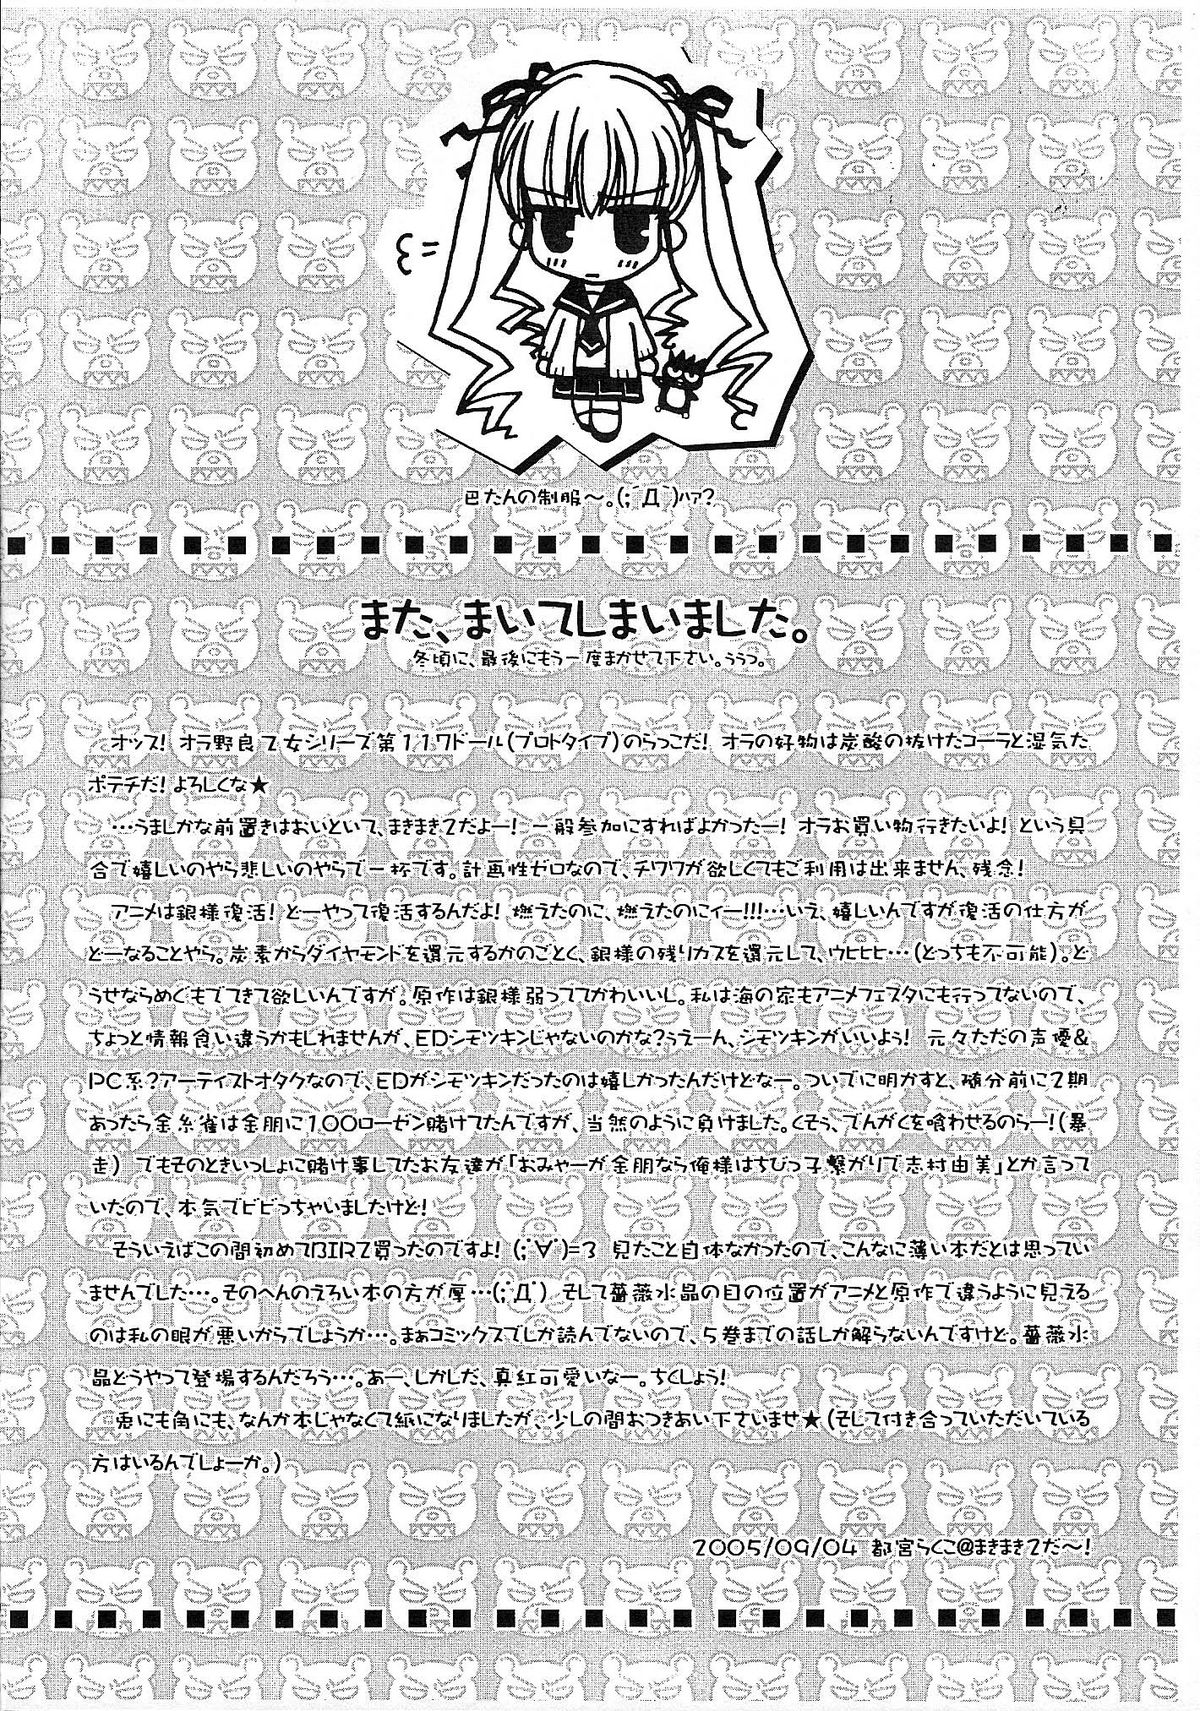 巴たんの制服～。(;´Д`)ハア?
また、まいてしまいました。
冬頃に、最後にもう一度まかせて下さい。ううっ。
オッス! オラ野良乙女シリーズ第117ドール(プロトタイプ)のらっこだ! オラの好物は炭酸の抜けたコーラと湿気た
ポテチだ! よろしくな★
…うましかな前置きはおいといて、まきまき2だよー! 一般参加にすればよかったー! オラお買い物行きたいよ! という具
合で嬉しいのやら悲しいのやらで一杯です。計画性ゼロなので、チワワが欲しくてもご利用は出来ません、残念!
アニメは銀様復活! どーやって復活するんだよ! 燃えたのに、燃えたのにィー!!!…いえ、嬉しいんですが復活の仕方が
どーなることやら。炭素からダイヤモンドを還元するかのごとく、銀様の残りカスを還元して、ウヒヒヒ…(どっちも不可能)。ど
うせならめぐもでてきて欲しいんですが。原作は銀様弱っててかわいいし。私は海の家もアニメフェスタにも行ってないので、
ちょっと情報食い違うかもしれませんが、EDシモツキンじゃないのかな?うえーん、シモツキンがいいよう! 元々ただの声優&
PC系?アーティストオタクなので、EDがシモツキンだったのは嬉しかったんだけどなー。ついでに明かすと、随分前に2期
あったら金糸雀は金朋に100ローゼン賭けてたんですが、当然のように負けました。くそう、でんがくを喰わせるのらー!(暴
走) でもそのときいっしょに賭け事してたお友達が「おみゃーが金朋なら俺様はちびっ子繋がりで志村由美」とか言って
いたので、本気でビビっちゃいましたけど!
そういえばこの間初めてBIRZ買ったのですよ! (;´∀`)=3 見たこと自体なかったので、こんなに薄い本だとは思ってい
ませんでした…。そのへんのえろい本の方が厚…(;´Д`) そして薔薇水晶の目の位置がアニメと原作で違うように見える
のは私の眼が悪いからでしょうか…。まぁコミックスでしか読んでないので、5巻までの話しか解らないんですけど。薔薇水
晶どうやって登場するんだろう…。あー、しかしだ、真紅可愛いなー。ちくしょう!
兎にも角にも、なんか本じゃなくて紙になりましたが、少しの間おつきあい下さいませ★(そして付き合っていただいている
方はいるんでしょーか。)
2005/09/04 都宮らくこ@まきまき2だ～!